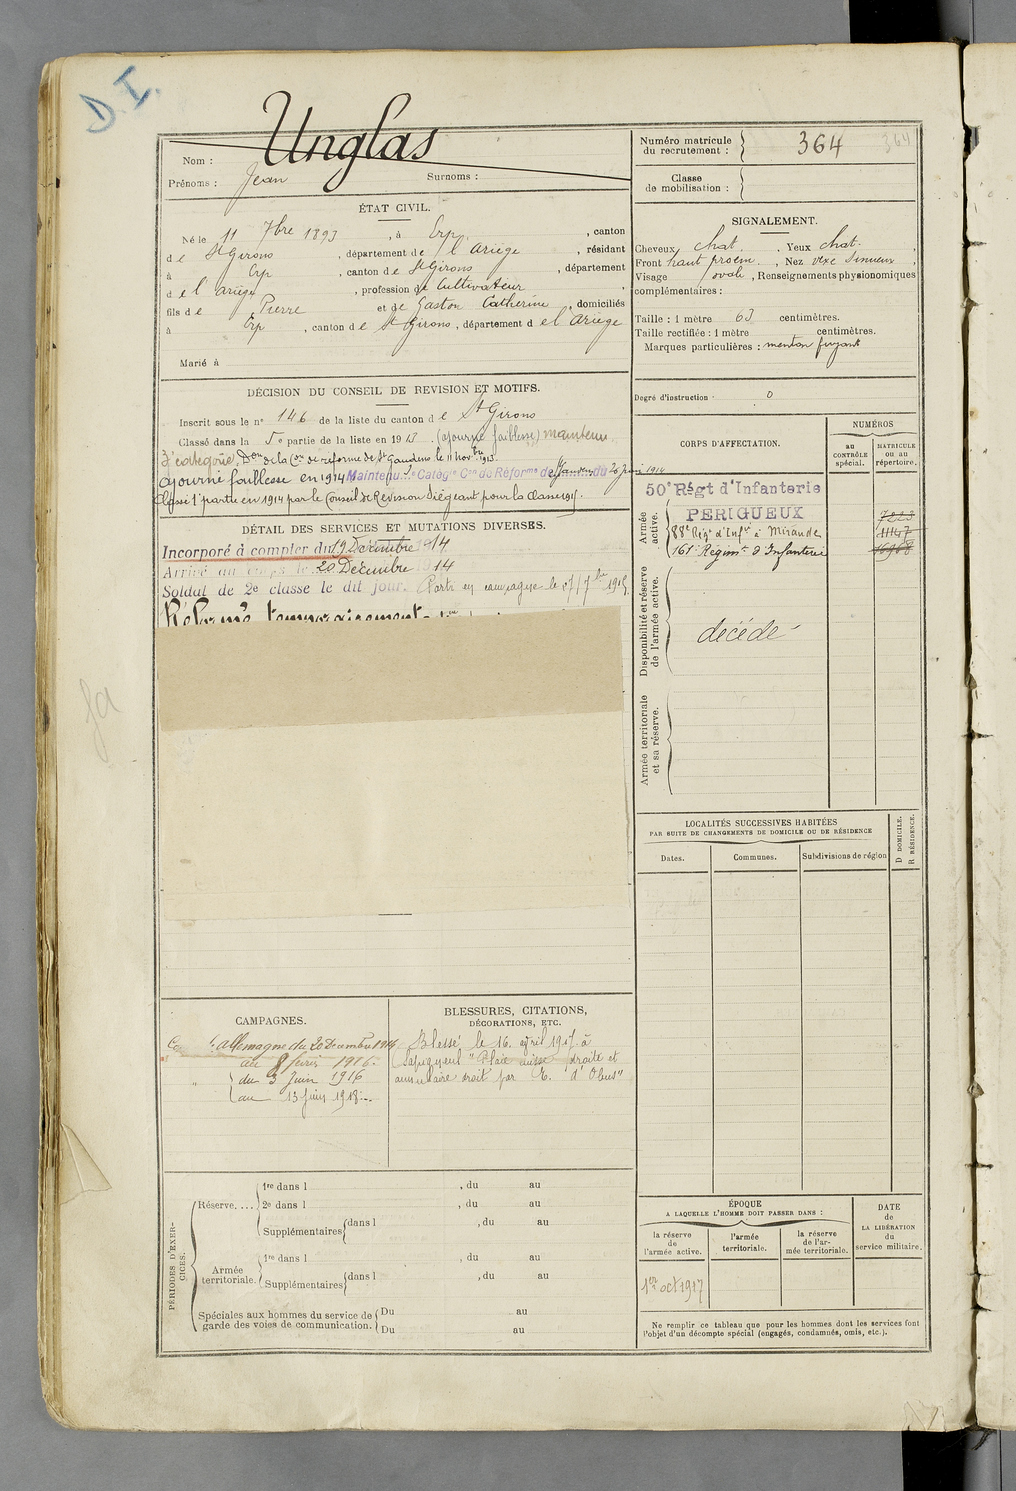 D.I.
Unglas
Nom :
Prénoms : Jean Surnoms :
Numéro matricule
du recrutement : 364 364
Classe
de mobilisation :
ÉTAT CIVIL.
Né le 11 7bre 1893, à Erp, canton
de St Girons, département de l'Ariège, résidant
à Erp, canton de St Girons, département
de l'Ariège, profession de Cultivateur,
fils de Pierre et de Gaston Catherine, domiciliés
à Erp, canton de St Girons, département de l'Ariège
Marié à
SIGNALEMENT.
Cheveux chat. , Yeux chat. ,
Front haut proém. , Nez vexe Sinueux ,
Visage ovale, Renseignements physionomiques
complémentaires :
Taille : 1 mètre 63 centimètres.
Taille rectifiée : 1 mètre centimètres.
Marques particulières : menton fuyant
Degré d'instruction : 0
DÉCISION DU CONSEIL DE REVISION ET MOTIFS.
Inscrit sous le n° 146 de la liste du canton de St Girons
Classé dans la 5e partie de la liste en 1913. (ajourné faiblesse) maintenu
2e catégorie. Don de la Con de réforme de St Gaudens le 11 Novbre 1913.
ajourné faiblesse en 1914 Maintenu Catégie Con de Réforme de St Gaudens du 26 Juin 1914
Classé 1e partie en 1914 par le Conseil de Revision Siégeant pour la classe 1915.
DÉTAIL DES SERVICES ET MUTATIONS DIVERSES.
Incorporé à compter du 19 Décembre 1914
Arrivé au corps le 20 Décembre 1914
Soldat de 2e classe le dit jour. Parti en campagne le 27 7bre 1915.
Réformé temporairement
CORPS D'AFFECTATION.
NUMÉROS
au
CONTRÔLE
spécial.
MATRICULE
ou au
répertoire.
Armée
active.
50e Régt d'Infanterie
PERIGUEUX 7223
88e Régt d'Infie à Mirande 11147
161e Régimt d'Infanterie 16968
Disponibilité et réserve
de l'armée active.
décédé
Armée territoriale
et sa réserve.
LOCALITÉS SUCCESSIVES HABITÉES
PAR SUITE DE CHANGEMENTS DE DOMICILE OU DE RÉSIDENCE
Dates. Communes. Subdivisions de région
D DOMICILE.
R RÉSIDENCE.
CAMPAGNES.
Ce l'allemagne du 20 Décembre 1914
au 8 févrir 1916.
" du 3 Juin 1916
au 13 juin 1918.
BLESSURES, CITATIONS,
DÉCORATIONS, ETC.
Blessé le 16 avril 1917 à
Sapigneul "Plaie cuisse droite et
annulaire droit par E. d'Obus"
PÉRIODES D'EXERCICES.
Réserve....
1re dans l , du au
2e dans l , du au
Supplémentaires dans l , du au
Armée
territoriale.
1re dans l , du au
Supplémentaires dans l , du au
Spéciales aux hommes du service de
garde des voies de communication.
Du au
Du au
ÉPOQUE
A LAQUELLE L'HOMME DOIT PASSER DANS :
la réserve
de
l'armée active.
l'armée
territoriale.
la réserve
de l'ar-
mée territoriale.
DATE
de
LA LIBÉRATION
du
service militaire.
1er oct 1917
Ne remplir ce tableau que pour les hommes dont les services font
l'objet d'un décompte spécial (engagés, condamnés, omis, etc.).